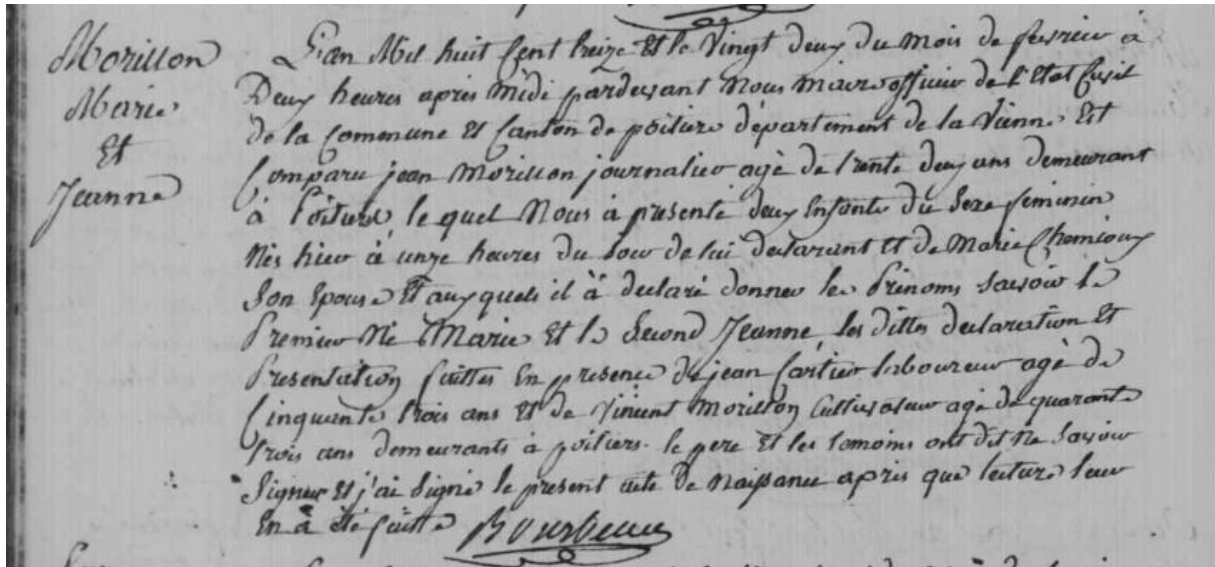 Morillon
Marie
Et
Jeanne
L'an Mil huit Cent treize Et le Vingt deux du Mois de fevrier à
Deux heures après Midi pardevant Nous Maire officier de l'Etat Civil
de la Commune Et Canton de poitiers departement de la Vienne Est
Comparu jean Morillon journalier agé de trente deux ans demeurant
à Poitiers le quel Nous à presenté deux Enfants du Sexe feminin
Nés hier à unze heures du Soir de lui declarant et de Marie
Son Epouse Et auxquels il à declaré donner les Prenoms Savoir le
Premier Né Marie Et le Second Jeanne, les dittes declaration Et
Presentation faittes En presence de jean Cartier laboureur agé de
Cinquante trois ans Et de Vincent Morillon Cultivateur agé de quarante
trois ans demeurants à poitiers. le pere Et les temoins ont dit Ne Savoir
Signer Et j'ai Signé le present acte de Naissance après que lecture leur
En à été faitte Bourbeau